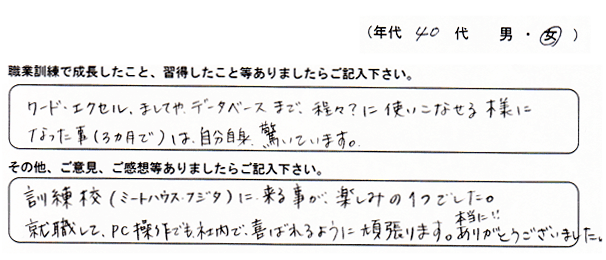 (年代 40 代 男・女)
職業訓練で成長したこと、習得したこと等ありましたらご記入下さい。
ワード・エクセル、ましてや、データベースまで、程々?に使いこなせる様に
なった事(3ヵ月で)は、自分自身、驚いています。
その他、ご意見、ご感想等ありましたらご記入下さい。
訓練校(ミートハウス・フジタ)に、来る事が、楽しみの1つでした。
就職して、PC操作でも、社内で、喜ばれるように頑張ります。本当に!!ありがとうございました。